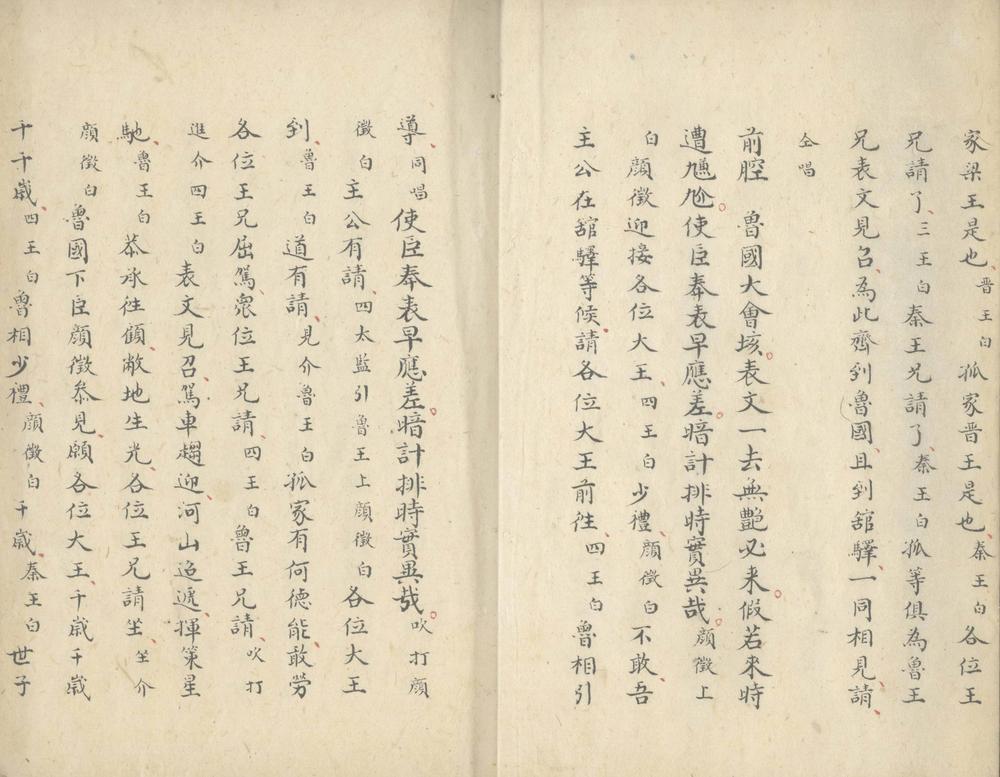 家梁王是也、晋王白孤家晋王是也、秦王白各位王
兄請了、三王白秦王兄請了、秦王白孤等俱為魯王
兄表文見召、為此齊到魯國、且到舘驛一同相見、請、
仝唱
前腔 魯國大會垓。表文一去無艷必来。假若来時
遭尷尬。使臣奉表早應差。暗計排時實異哉。顔徵上
白顔徵迎接各位大王、四王白少禮、顔徵白不敢、吾
主公在舘驛等候、請各位大王前徃、四王白魯相引
導、同唱使臣奉表早應差。暗計排時實異哉。吹打顔
徵白主公有請、四太監引魯王上顔徵白各位大王
到、魯王白道有請、見介魯王白孤家有何德能、敢勞
各位王兄屈駕、衆位王兄請、四王白魯王兄請、吹打
進介四王白表文見召、駕車趨迎、河山迢遞、揮策星
馳、魯王白恭承徃顧、敝地生光、各位王兄請坐、坐介
顔徵白魯國下臣顔徵叅見、願各位大王、千歲千歲
千千歲、四王白魯相少禮、顔徵白千歲、秦王白世子